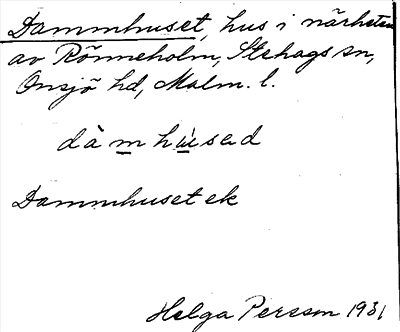 Dammhuset, hus i närheten
av Rönneholm, Stehags sn,
Onsjö hd, Malm. l.
dàmhúsəd
Dammhuset ek
Helga Persson 1931